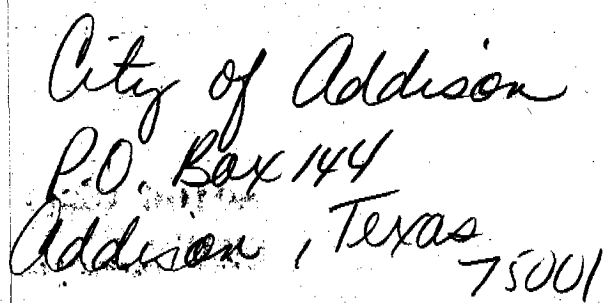 City of Addison
P.O. Box 144
Addison, Texas
75001